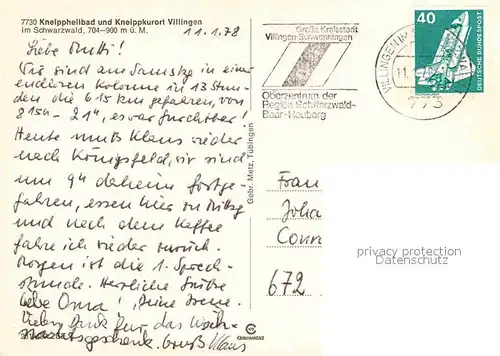 7730 Kneippheilbad und Kneippkurort Villingen
im Schwarzwald, 704–900 m ü. M.
11.1.78
Liebe Mutti!
Wir sind am Samstag in einer
endlosen Kolonne in 13 Stun-
den die 615 km gefahren, von
8 15h - 21h, es war furchtbar!
Heute muß Klaus wieder
nach Königsfeld, wir sind
um 9h daheim fortge-
fahren, essen hier zu Mittag
und nach dem Kaffee
fahre ich wieder zurück.
Morgen ist die 1. Sprech-
stunde. Herzliche Grüße
Deine Irene.
Liebe Oma!
Vielen Dank für das Weih-
nachtsgeschenk. Gruß Klaus
Gebr. Metz, Tübingen
Große Kreisstadt
Villingen-Schwenningen
Oberzentrum der
Region Schwarzwald-
Baar-Heuberg
VILLINGEN IM
11.
773
40
DEUTSCHE BUNDESPOST
Frau
Joha
Conra
672
privacy protection
Datenschutz